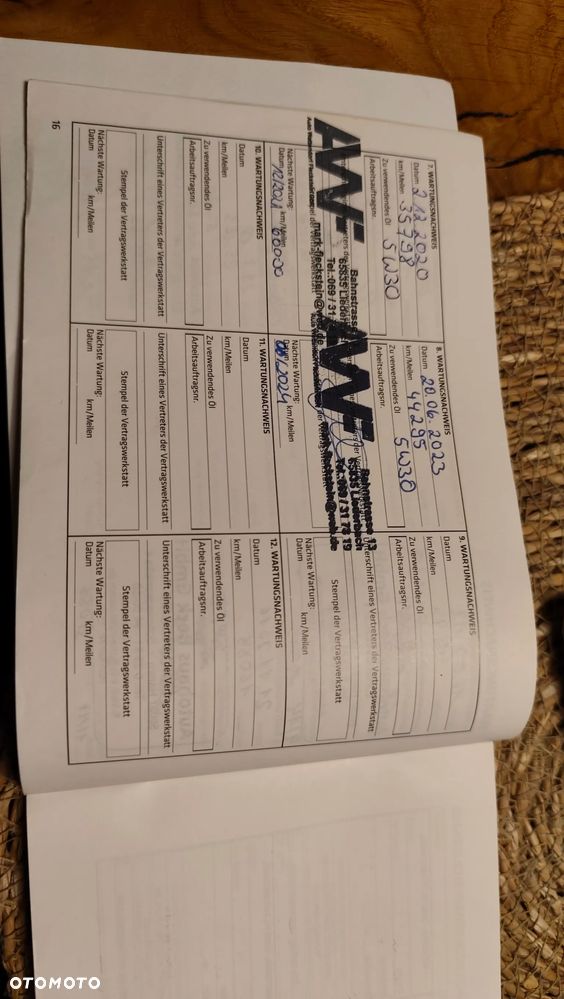 7. WARTUNGSNACHWEIS
Datum 2.12.2020
km/Meilen 35798
Zu verwendendes Öl 5W30
Arbeitsauftragsnr.
AWF
Bahnstrasse
65835 Liederbach
Tel.:069 / 31
mark-fleckstein@web.de
Nächste Wartung:
Datum 12/2021 km/Meilen 60000
8. WARTUNGSNACHWEIS
Datum 20.06.2023
km/Meilen 44295
Zu verwendendes Öl 5W30
Arbeitsauftragsnr.
AWF
Bahnstrasse 13
65835 Liederbach
Tel.:069 / 31 73 19
mark-fleckstein@web.de
Nächste Wartung:
06/2024 km/Meilen
9. WARTUNGSNACHWEIS
Datum
km/Meilen
Zu verwendendes Öl
Arbeitsauftragsnr.
Unterschrift eines Vertreters der Vertragswerkstatt
Stempel der Vertragswerkstatt
Nächste Wartung:
Datum km/Meilen
10. WARTUNGSNACHWEIS
Datum
km/Meilen
Zu verwendendes Öl
Arbeitsauftragsnr.
Unterschrift eines Vertreters der Vertragswerkstatt
Stempel der Vertragswerkstatt
Nächste Wartung:
Datum km/Meilen
11. WARTUNGSNACHWEIS
Datum
km/Meilen
Zu verwendendes Öl
Arbeitsauftragsnr.
Unterschrift eines Vertreters der Vertragswerkstatt
Stempel der Vertragswerkstatt
Nächste Wartung:
Datum km/Meilen
12. WARTUNGSNACHWEIS
Datum
km/Meilen
Zu verwendendes Öl
Arbeitsauftragsnr.
Unterschrift eines Vertreters der Vertragswerkstatt
Stempel der Vertragswerkstatt
Nächste Wartung:
Datum km/Meilen
16
OTOMOTO